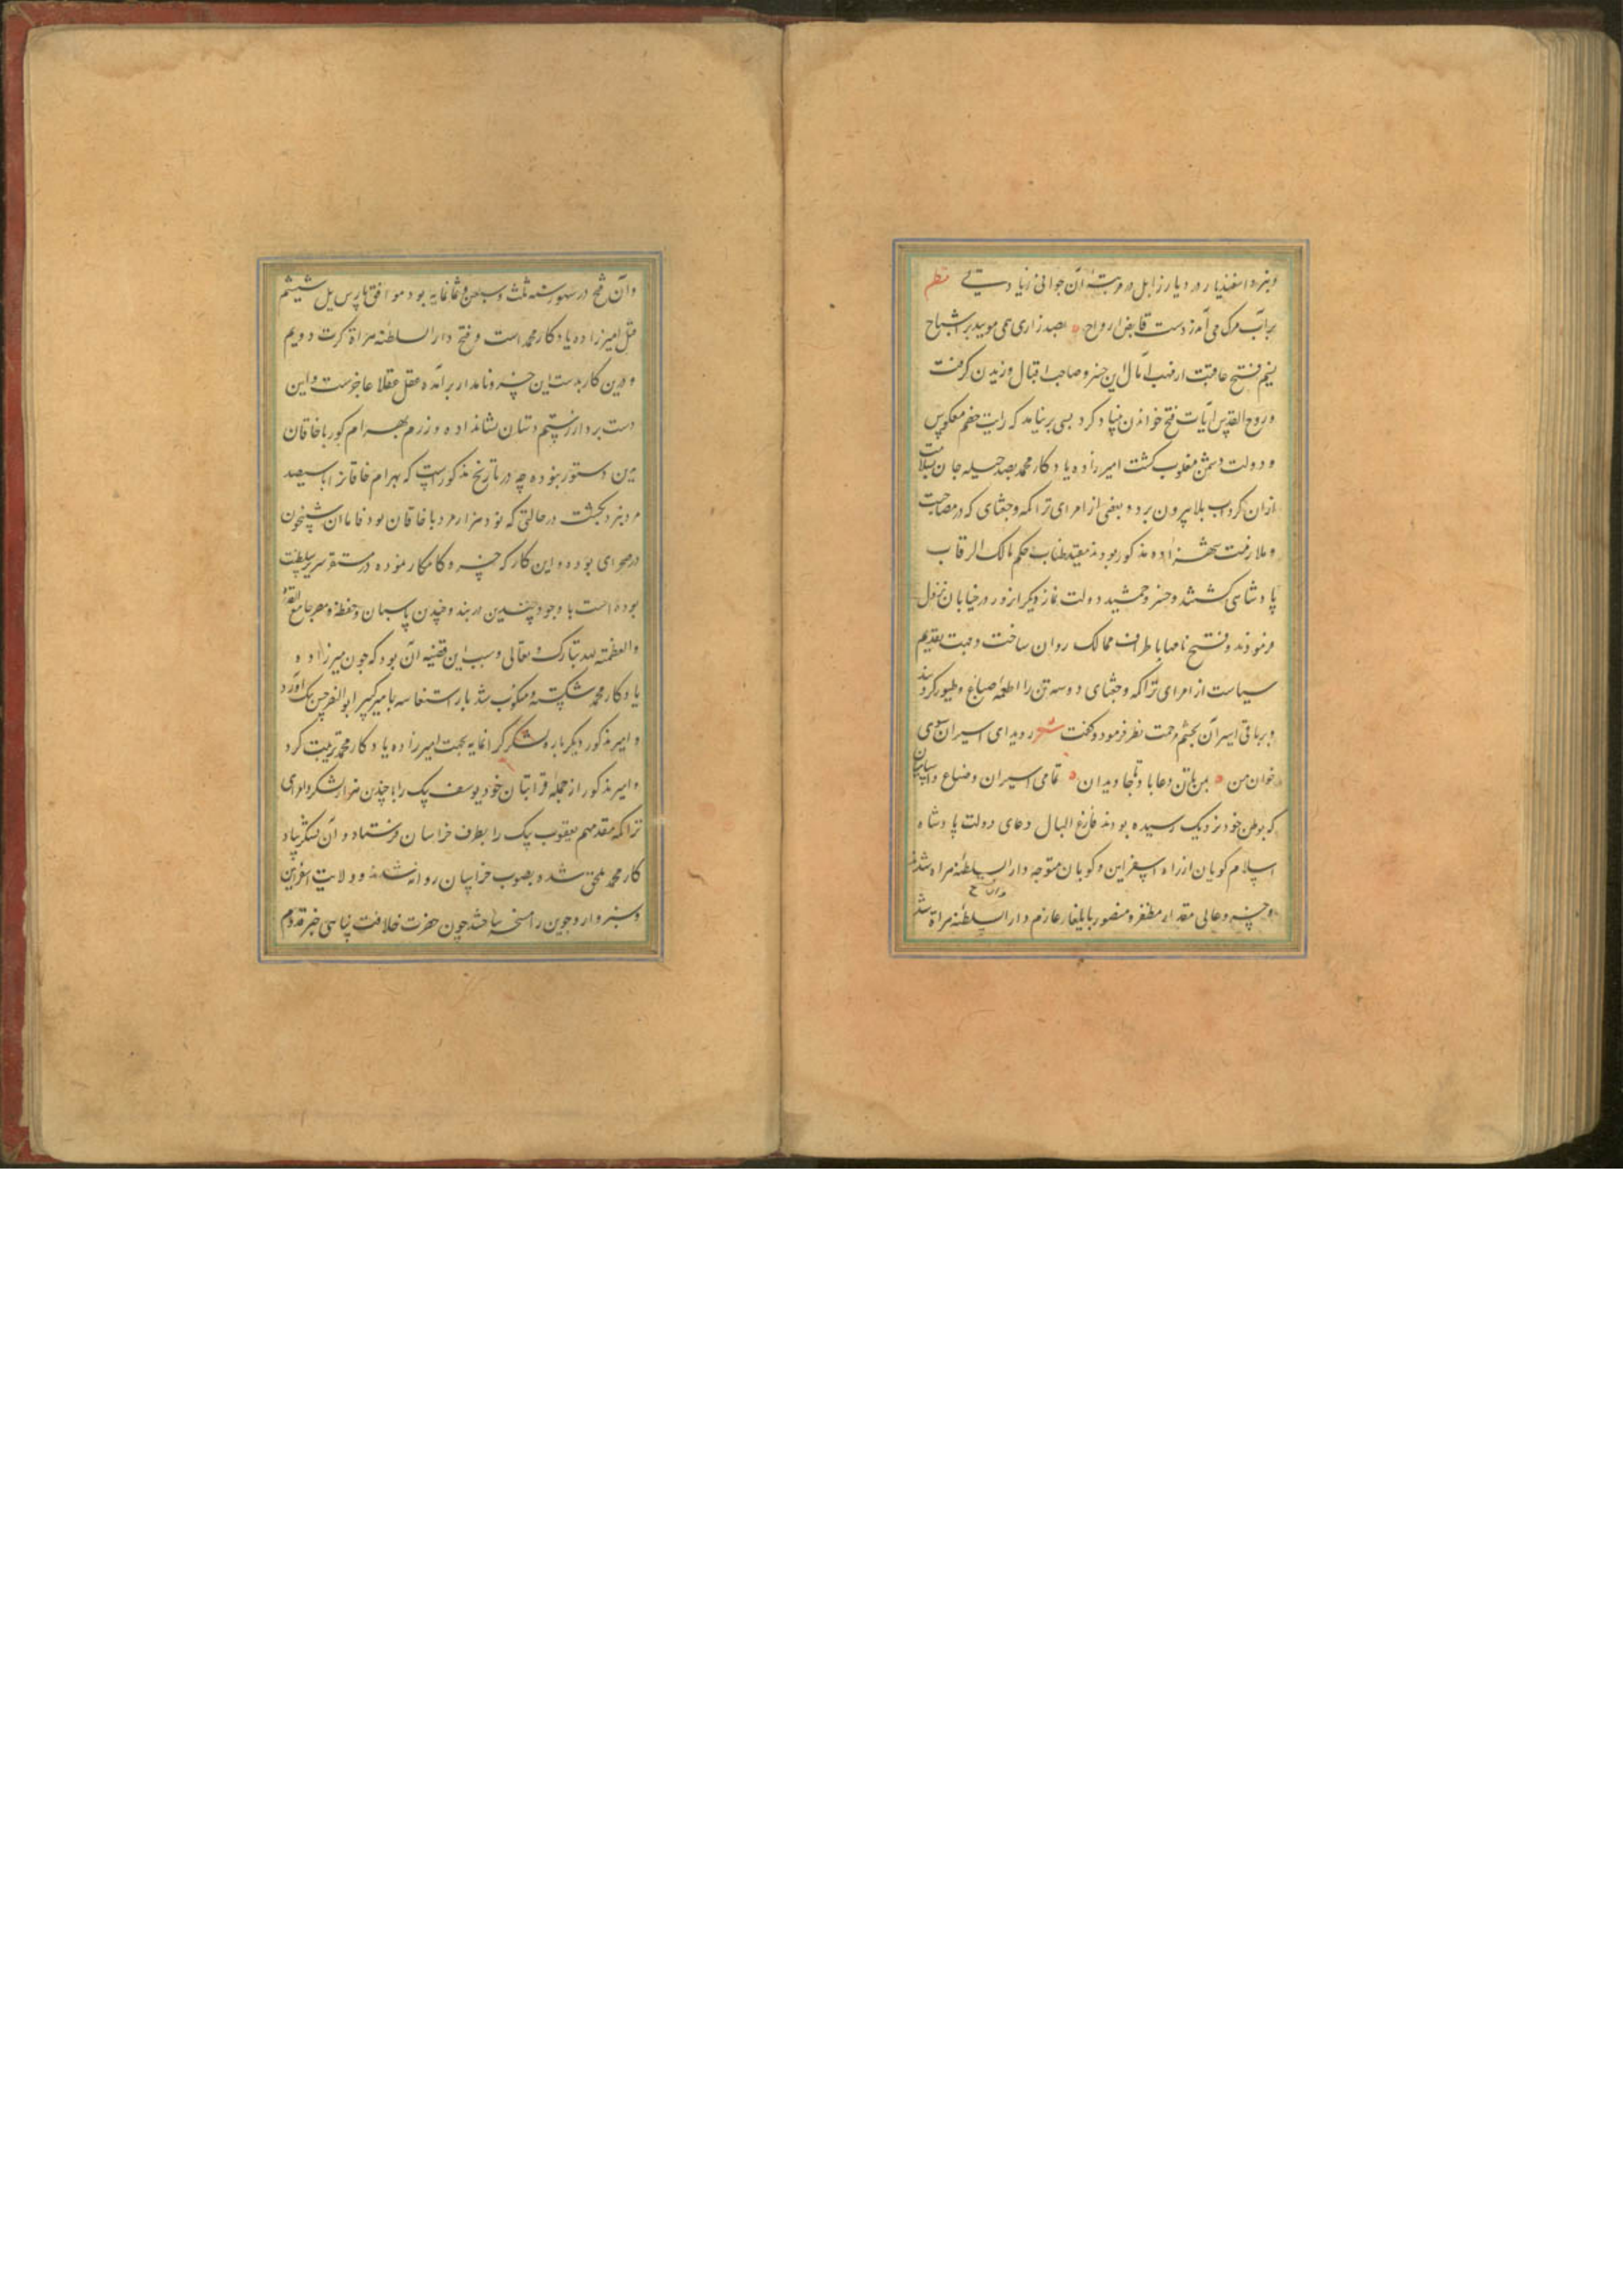 ونبرد اسفندیار در دیار زابل در مرتبهٔ آن جوانی زیادستی نظم
برآب مرک می آمد ز دست قابض ارواح ه بصد زاری همی مویید بر اشباح
نسیم فتح عاقبت از مهب آمال این خسرو صاحب اقبال وزیدن کرفت
و روح القدس آیات فتح خواندن بنیاد کرد بسی برنیامد که رایت خصم معکوس
و دولت دشمن مغلوب کشت امیرزاده یادکار محمد بصد حیله جان بسلامت
ازان کرداب بلا بیرون برد و بعضی از امرای تراکمه وجغتای که در مصاحبت
و ملازمت شهزاده مذکور بودند مقید طناب حکم مالک الرقاب
پادشاهی کشتند و خسرو جمشید دولت نماز دیکر ازو در خیابان نزول
فرمودند و فتح نامها باطراف ممالک روان ساخت و جهت تقدیم
سیاست از امرای تراکمه وجغتای دو سه تن را طعمه ضباع و طیور کردند
و بر باقی اسیران بچشم رحمت نظر فرمود و کفت شعر روید ای اسیران سوی
خوان من ه بمن بادتان دعا باد تا جاویدان ه تمامی اسیران
که بوطن خود نزدیک رسیده بودند فارغ البال دعای دولت پادشاه
اسلام کویان از راه اسفراین و کویان متوجه دار السلطنه هراه شدند
و خسرو عالی مقدار مظفر و منصور بایلغار عازم دار السلطنه هراة شد
وآن فتح در شهور سنه ثلث وسبعین و ثمانمایه بود موافق پارس ییل ششم
قتل امیرزاده یادکار محمد است و فتح دار السلطنه هراة کرت دویم
و درین کار بدست این خسرو نامدار برآمده عقل عقلا عاجزست و این
دست برد از رستم دستان نشان نداده و رزم بهرام کور با خاقان
بدین دستور نبوده چه در تاریخ مذکورست که بهرام خاقانرا با سیصد
مرد نبرد بکشت در حالتی که نود هزار مرد با خاقان بود فاما ان شبیخون
در صحرای بوده و این کار که خسرو کامکار نموده در مستقر سریر سلطنت
بوده است با وجود چندین دربند و چندین پاسبان و حفظه و مصر جامع القدرة
والعظمته لله تبارک و تعالی وسبب این قضیه آن بود که چون میرزاده
یادکار محمد شکسته و منکوب شد باز استغاسه بامیر کبیر ابوالنصر حسن بیک آورد
و امیر مذکور دیکر باره لشکر کرانمایه بجهت امیرزاده یادکار محمد ترتیب کرد
و امیر مذکور از جمله قرابتان خود یوسف بیک را با چندین هزار لشکر و امرای
تراکمه مقدمهم یعقوب بیک را بطرف خراسان فرستاد و آن لشکر بیاد
کار محمد ملحق شده بصوب خراسان روانه شدند و ولایت اسفراین
و سبزوار و جوین را مسخر ساختند چون حضرت خلافت پناهی خبر قدوم